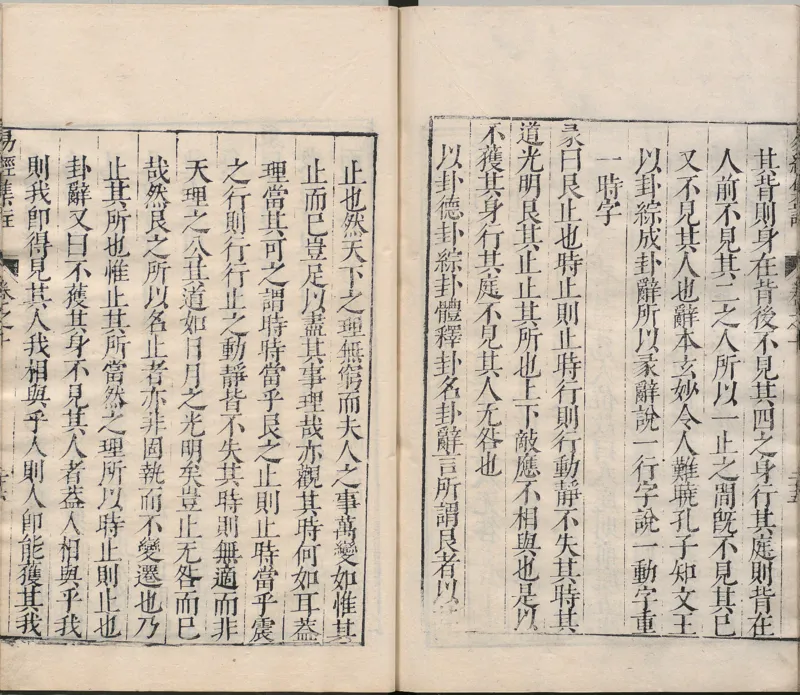 其背則身在背後不見其四之身行其庭則背在
人前不見其二之人所以一止之間旣不見其己
又不見其人也辭本玄妙令人難曉孔子知文王
以卦綜成卦辭所以彖辭說一行字說一動字重
一時字
彖曰艮止也時止則止時行則行動靜不失其時其
道光明艮其止止其所也上下敵應不相與也是以
不獲其身行其庭不見其人无咎也
以卦德卦綜卦體釋卦名卦辭言所謂艮者以
止也然天下之理無窮而夫人之事萬變如惟其
止而已豈足以盡其事理哉亦觀其時何如耳蓋
理當其可之謂時時當乎艮之止則止時當乎震
之行則行行止之動靜皆不失其時則無適而非
天理之公其道如日月之光明矣豈止无咎而已
哉然艮之所以名止者亦非固執而不變遷也乃
止其所也惟止其所當然之理所以時止則止也
卦辭又曰不獲其身不見其人者蓋人相與乎我
則我卽得見其人我相與乎人則人卽能獲其我
易經集註